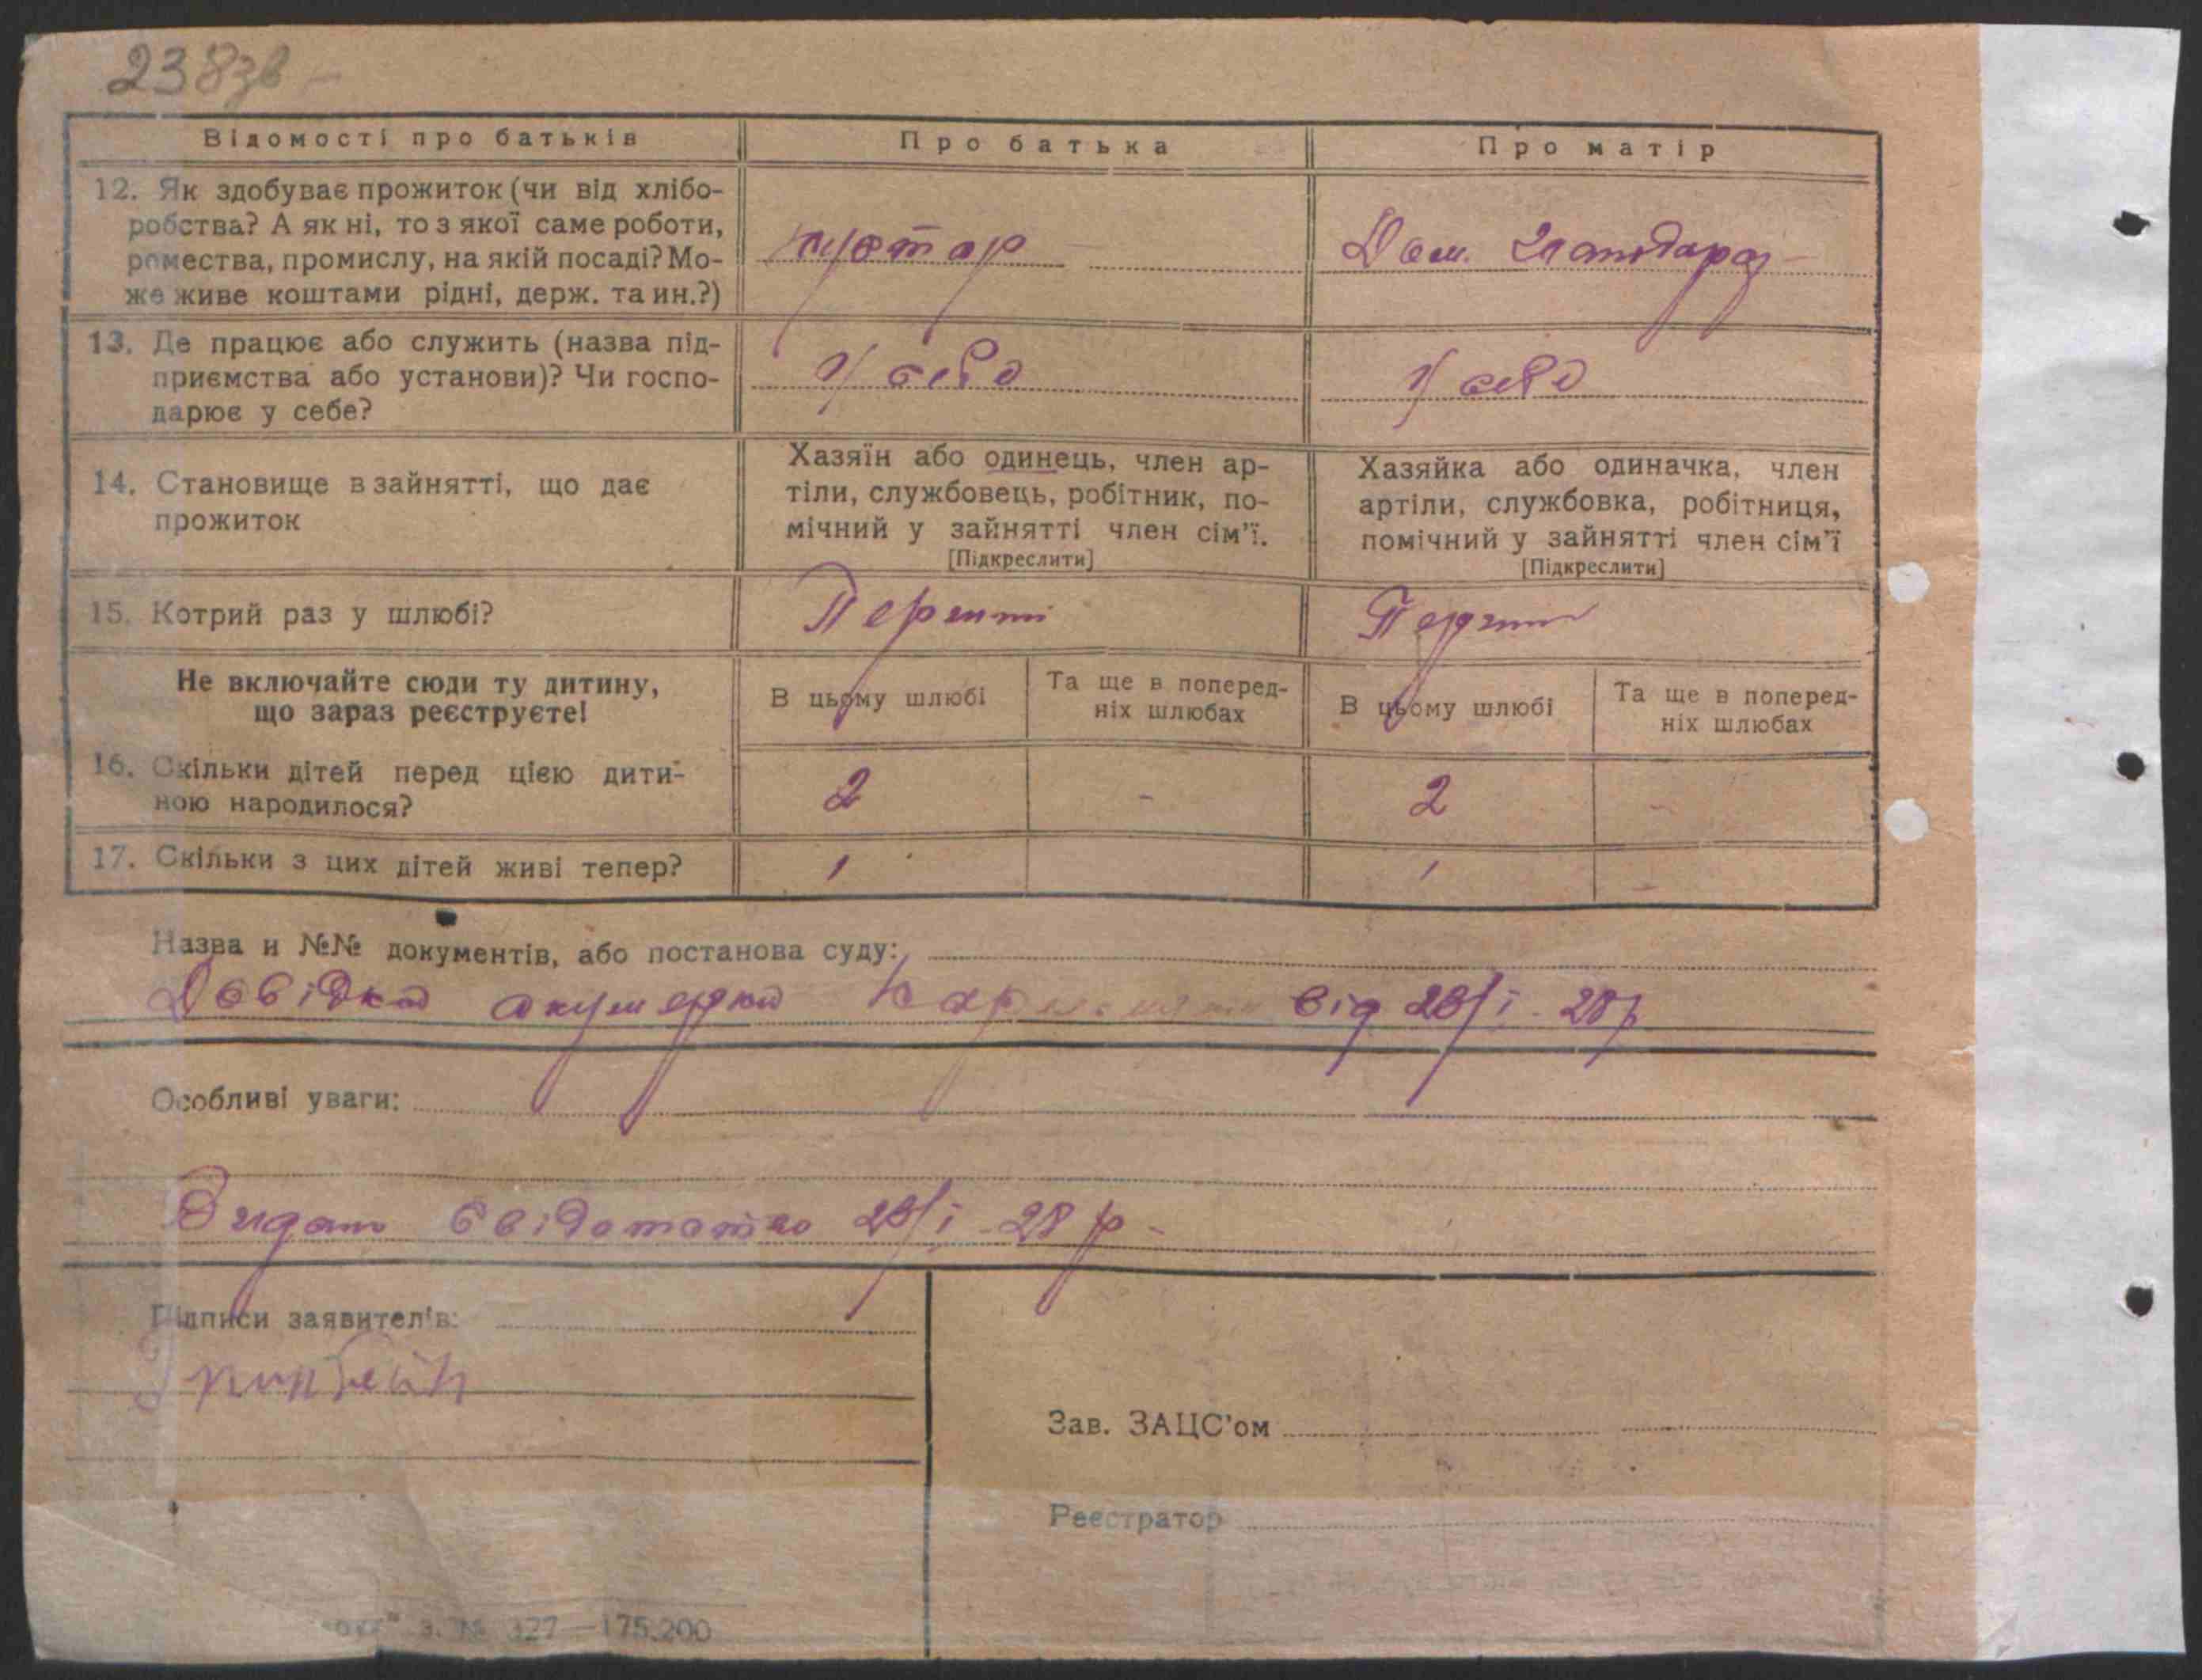 238зв -
Відомості про батьків
Про батька
Про матір
12. Як здобуває прожиток (чи від хлібо-
робства? А як ні, то з якої саме роботи,
ремества, промислу, на якій посаді? Мо-
же живе коштами рідні, держ. та ин.?)
кустар
Дом. господарка
13. Де працює або служить (назва під-
приємства або установи)? Чи госпо-
дарює у себе?
У себе
У себе
14. Становище в зайнятті, що дає
прожиток
Хазяїн або одинець, член ар-
тіли, службовець, робітник, по-
мічний у зайнятті член сім'ї.
[Підкреслити]
Хазяйка або одиначка, член
артіли, службовка, робітниця,
помічний у зайнятті член сім'ї
[Підкреслити]
15. Котрий раз у шлюбі?
Перший
Перший
Не включайте сюди ту дитину,
що зараз реєструєте!
В цьому шлюбі
Та ще в поперед-
ніх шлюбах
В цьому шлюбі
Та ще в поперед-
ніх шлюбах
16. Скільки дітей перед цією дити-
ною народилося?
2
-
2
-
17. Скільки з цих дітей живі тепер?
1
1
-
Назва и №№ документів, або постанова суду:
Довідка акушерки від 29/І - 28 р
Особливі уваги:
Видано свідоцтво 29/І - 28 р -
Підписи заявителів:
Зав. ЗАЦС'ом
Реєстратор
з. № 327 — 175.200